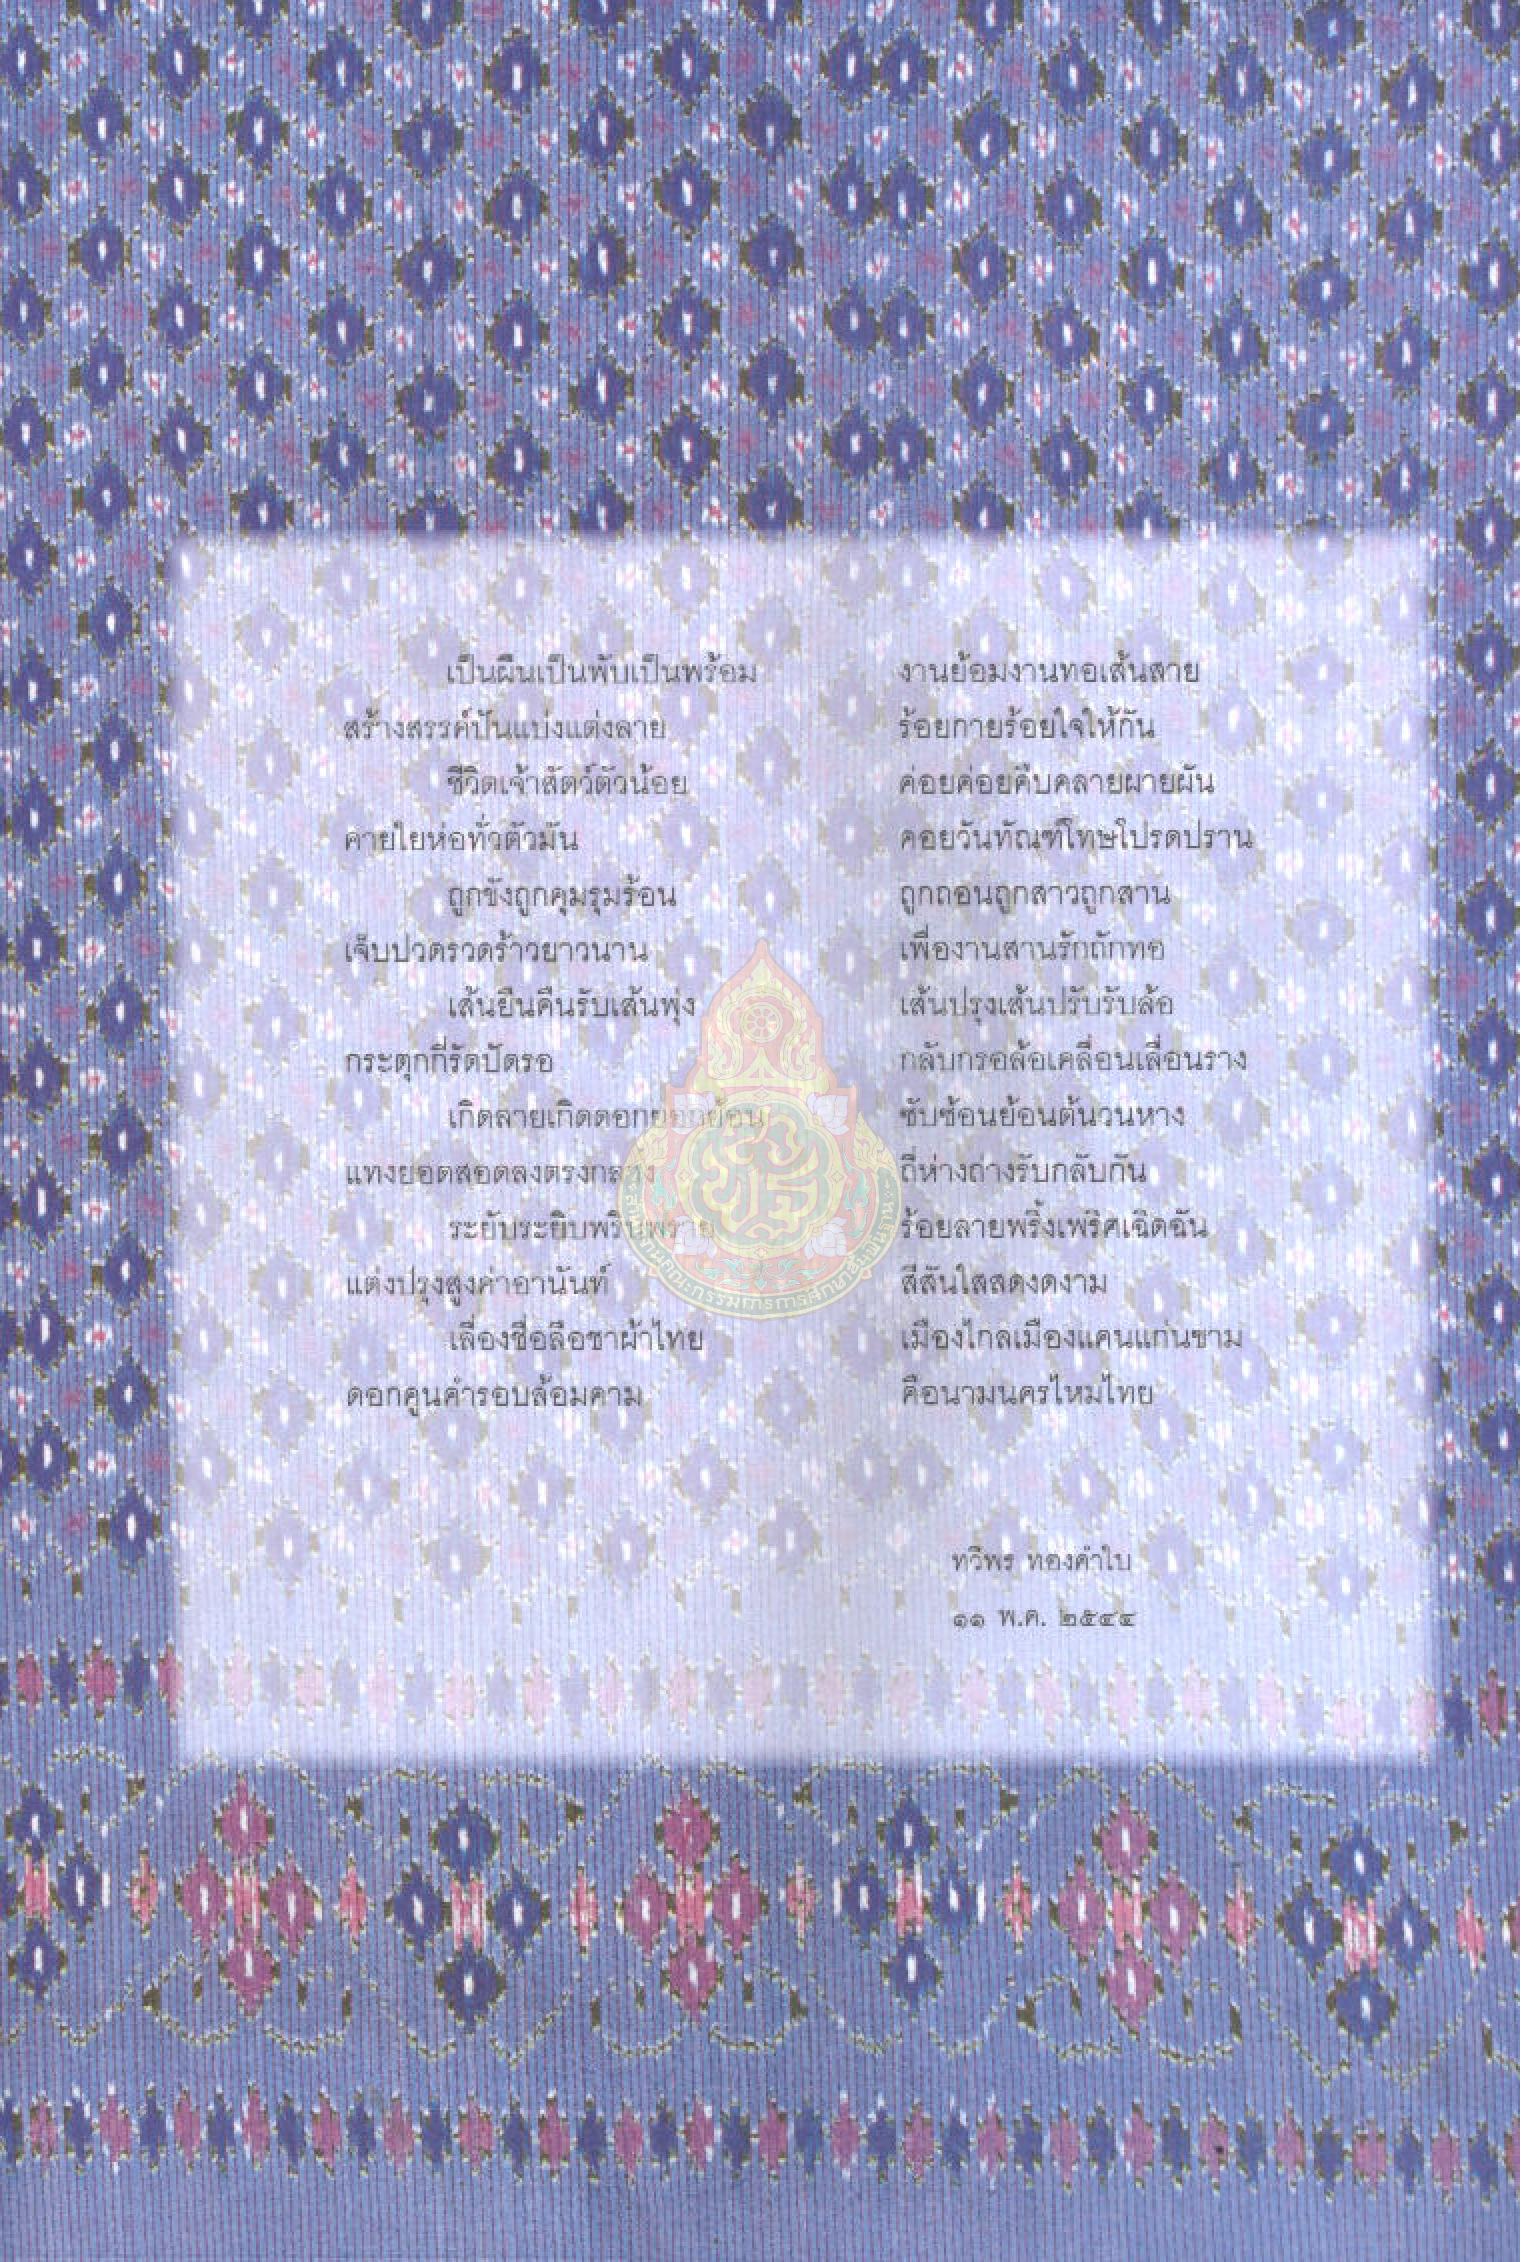 เป็นผืนเป็นพับเป็นพร้อม งานย้อมงานทอเส้นสาย
สร้างสรรค์ปันแบ่งแต่งลาย ร้อยกายร้อยใจให้กัน
ชีวิตเจ้าสัตว์ตัวน้อย ค่อยค่อยคืบคลายผายผัน
คายใยห่อทั่วตัวมัน คอยวันทัณฑ์โทษโปรดปราน
ถูกขังถูกคุมรุมร้อน ถูกถอนถูกสาวถูกสาน
เจ็บปวดรวดร้าวยาวนาน เพื่องานสานรักถักทอ
เส้นยืนคืนรับเส้นพุ่ง เส้นปรุงเส้นปรับรับล้อ
กระตุกกี่รัดปัดรอ กลับกรอล้อเคลื่อนเลื่อนราง
เกิดลายเกิดดอกยอกย้อน ซับซ้อนย้อนต้นวนหาง
แทงยอดสอดลงตรงกลาง ถี่ห่างถ่างรับกลับกัน
ระยับระยิบพริ้นพราย ร้อยลายพริ้งเพริศเฉิดฉัน
แต่งปรุงสูงค่าอานันท์ สีสันใสสดงดงาม
เลื่องชื่อลือชาผ้าไทย เมืองไกลเมืองแคนแก่นขาม
ดอกคูนคำรอบล้อมคาม คือนามนครไหมไทย
ทวีพร ทองคำใบ
๑๑ พ.ค. ๒๕๔๔
สำนักงานคณะกรรมการการศึกษาขั้นพื้นฐาน